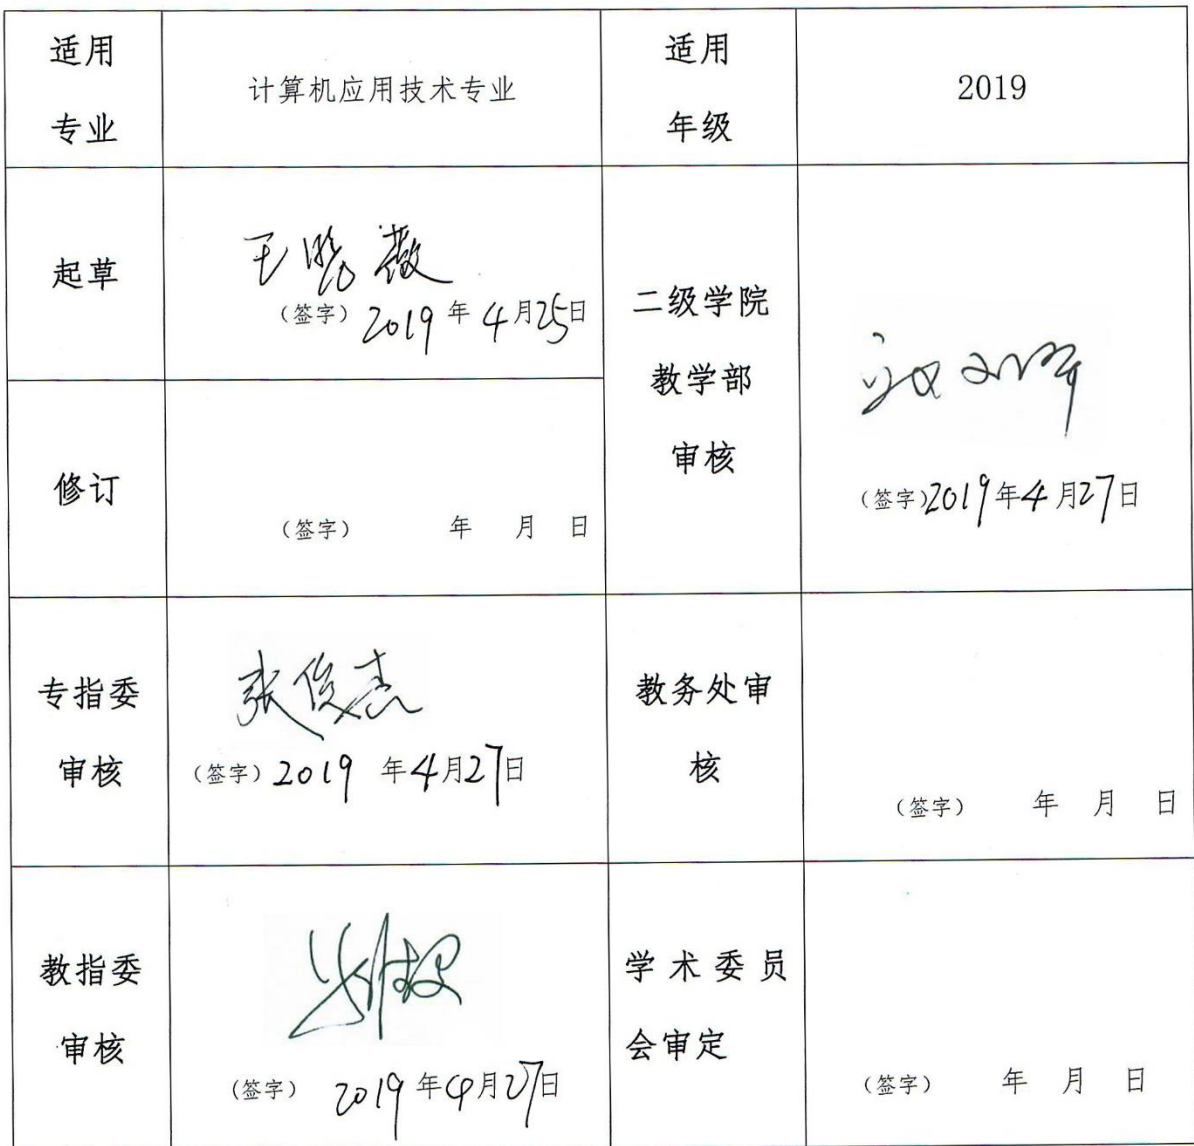 适用
专业
计算机应用技术专业
适用
年级
2019
起草
王晓薇
(签字) 2019 年 4月25日
二级学院
教学部
审核
(签字)2019年4月27日
修订
(签字) 年 月 日
专指委
审核
张俊杰
(签字) 2019 年4月27日
教务处审
核
(签字) 年 月 日
教指委
审核
(签字) 2019年4月27日
学术委员
会审定
(签字) 年 月 日